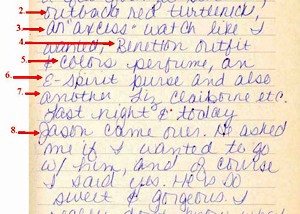 2.
outback red turtleneck,
3. an "axcess" watch like I
4.
wanted, Benetton outfit
5. & colors perfume, an
6. E-spirit purse and also
7. another Liz Claiborne etc.
Last night & today
8. Jason came over. He asked
me if I wanted to go
w/ him, and of course
I said yes. He is so
sweet & gorgeous. I